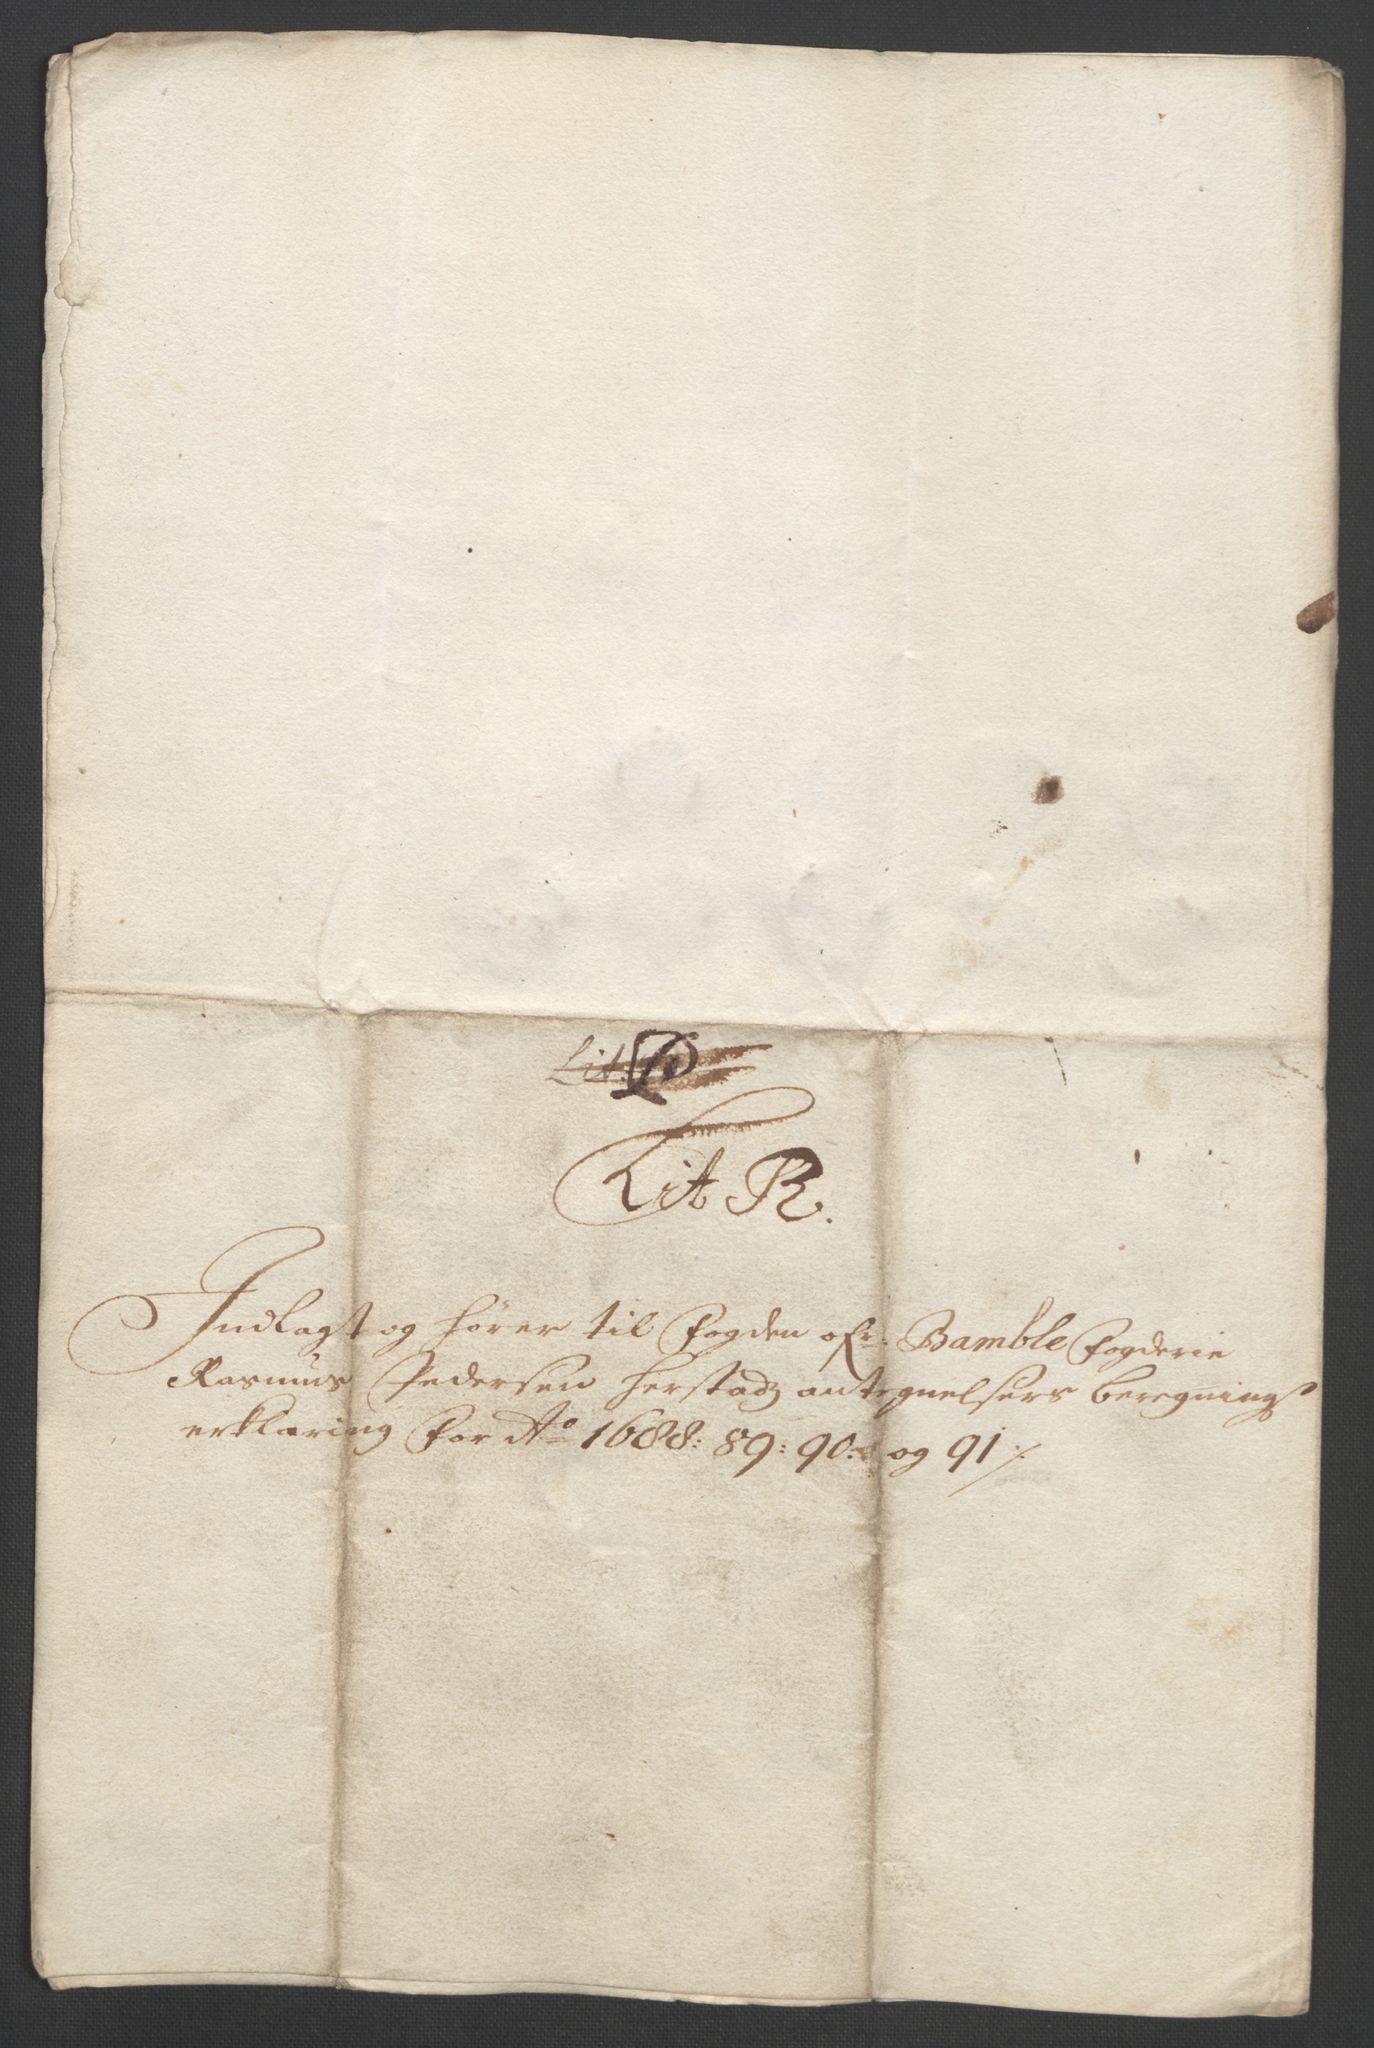 Lit
Lit R.
Indlagt og hører til Fogden ofr. Bamble Fogderie
Rasmus Pedersen herstadz antegnelsers beregnings
erklæring For Ao 1688: 89: 90: og 91 ⁒